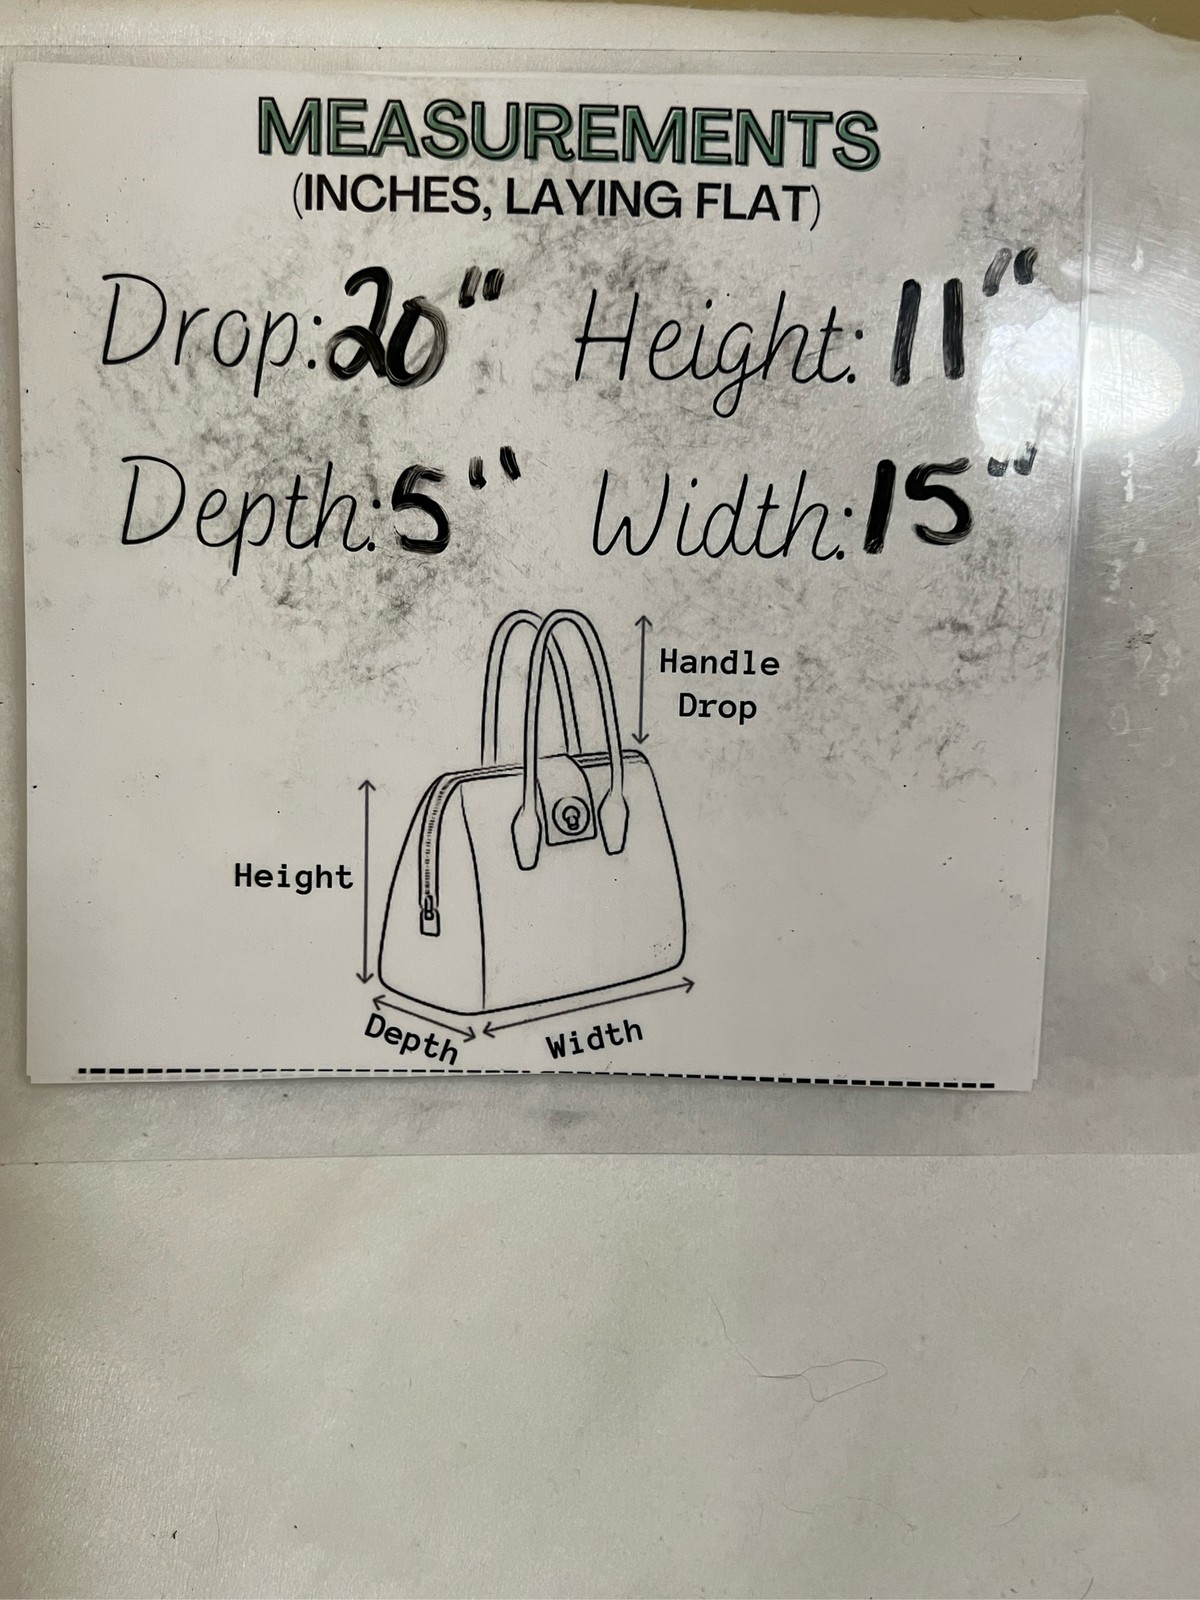 MEASUREMENTS
(INCHES, LAYING FLAT)
Drop: 20" Height: 11"
Depth: 5" Width: 15"
Handle
Drop
Height
Depth
Width